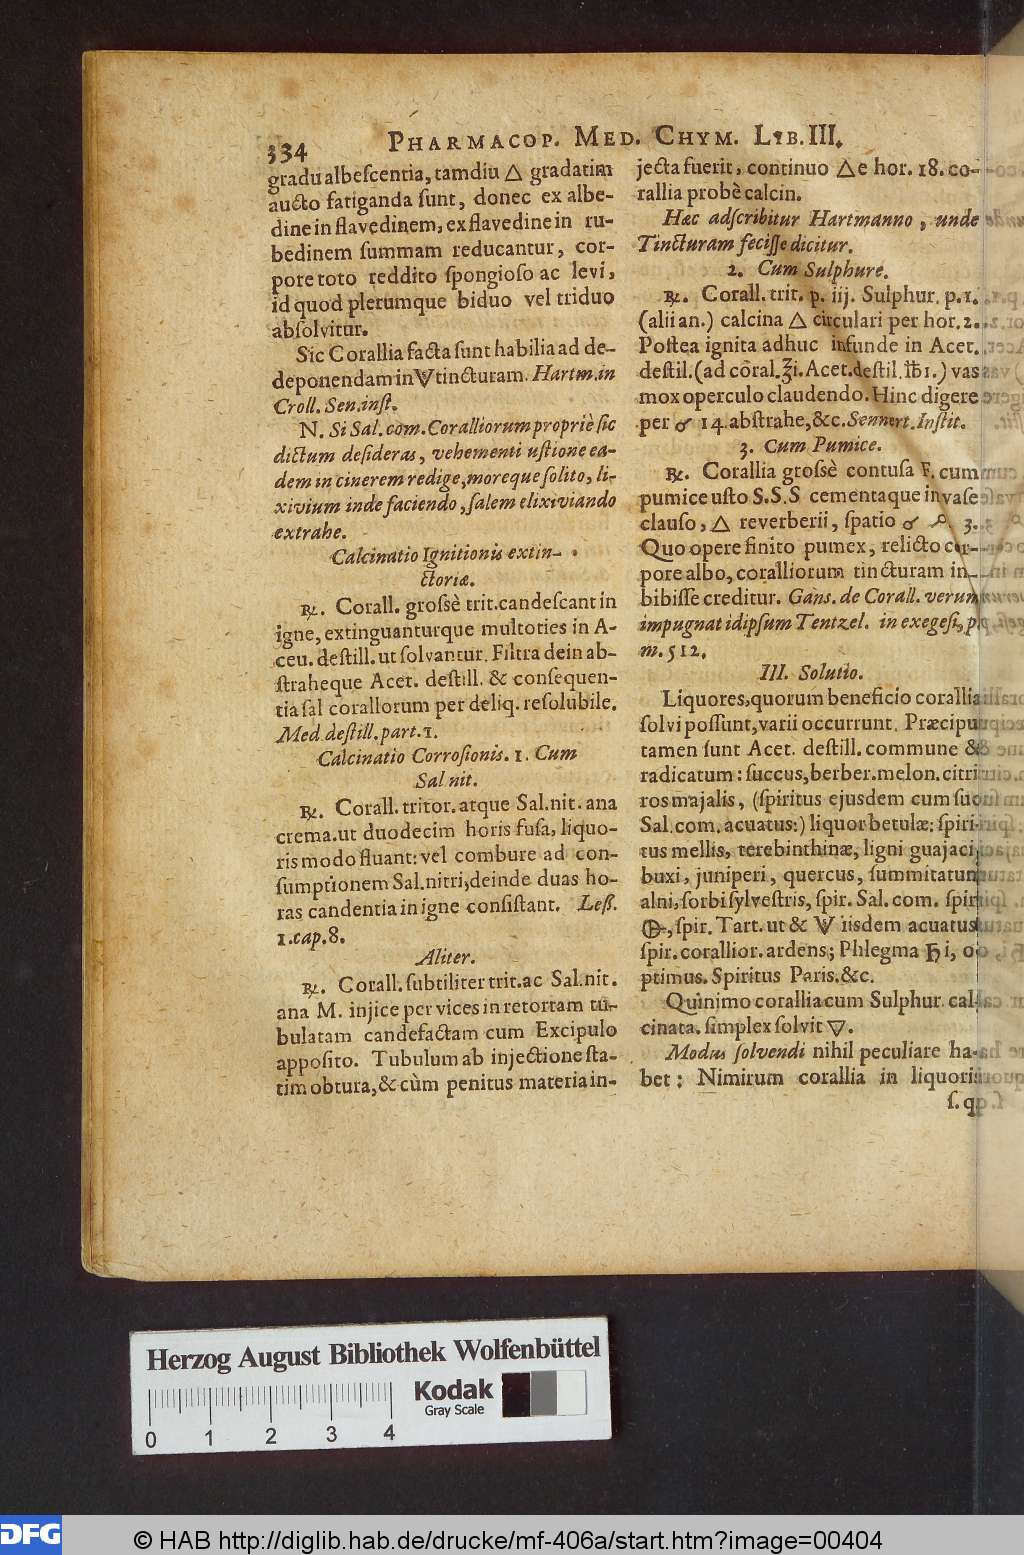 334 PHARMACOP. MED. CHYM. LIB. III.
gradu albeſcentia, tamdiu △ gradatim
aucto fatiganda ſunt, donec ex albe-
dine in flavedinem, ex flavedine in ru-
bedinem ſummam reducantur, cor-
pore toto reddito ſpongioſo ac levi,
id quod plerumque biduo vel triduo
abſolvitur.
Sic Corallia facta ſunt habilia ad de-
deponendam in tincturam. Hartm. in
Croll. Sen. inſt.
N. Si Sal. com. Coralliorum propriè ſic
dictum deſideras, vehementi uſtione ea-
dem in cinerem redige, moreque ſolito, li-
xivium inde faciendo, ſalem elixiviando
extrahe.
Calcinatio Ignitionis extin-
ctoriæ.
℞. Corall. groſsè trit. candeſcant in
igne, extinguanturque multoties in A-
ceu. deſtill. ut ſolvantur. Filtra dein ab-
ſtraheque Acet. deſtill. & conſequen-
tia ſal corallorum per deliq. reſolubile.
Med. deſtill. part. 1.
Calcinatio Corroſionis. 1. Cum
Sal nit.
℞. Corall. tritor. atque Sal. nit. ana
crema. ut duodecim horis fuſa, liquo-
ris modo fluant: vel combure ad con-
ſumptionem Sal. nitri, deinde duas ho-
ras candentia in igne conſiſtant. Leß.
1. cap. 8.
Aliter.
℞. Corall. ſubtiliter trit. ac Sal. nit.
ana M. injice per vices in retortam tu-
bulatam candefactam cum Excipulo
appoſito. Tubulum ab injectione ſta-
tim obtura, & cùm penitus materia in-
jecta fuerit, continuo △e hor. 18. co-
rallia probè calcin.
Hæc adſcribitur Hartmanno, unde
Tincturam feciſſe dicitur.
2. Cum Sulphure.
℞. Corall. trit. p. iij. Sulphur. p. 1.
(alii an.) calcina △ circulari per hor. 2.
Poſtea ignita adhuc infunde in Acet.
deſtil. (ad coral. ℥i. Acet. deſtil. ℔1.) vas
mox operculo claudendo. Hinc digere
per ♂ 14. abſtrahe, &c. Sennert. Inſtit.
3. Cum Pumice.
℞. Corallia groſsè contuſa F. cum
pumice uſto S.S.S cementaque in vaſe
clauſo, △ reverberii, ſpatio ♂ 3.
Quo opere finito pumex, relicto cor-
pore albo, coralliorum tincturam in-
bibiſſe creditur. Gans. de Corall. verum
impugnat idipſum Tentzel. in exegeſi, p.
m. 512.
III. Solutio.
Liquores, quorum beneficio corallia
ſolvi poſſunt, varii occurrunt. Præcipu
tamen ſunt Acet. deſtill. commune &
radicatum: ſuccus, berber. melon. citri
ros majalis, (ſpiritus ejusdem cum ſuo
Sal. com. acuatus:) liquor betulæ: ſpiri-
tus mellis, terebinthinæ, ligni guajaci,
buxi, juniperi, quercus, ſummitatum
alni, ſorbi ſylveſtris, ſpir. Sal. com. ſpir
, ſpir. Tart. ut & iisdem acuatus
ſpir. corallior. ardens; Phlegma ♄i, o
ptimus. Spiritus Paris. &c.
Quinimo corallia cum Sulphur. cal-
cinata, ſimplex ſolvit ▽.
Modus ſolvendi nihil peculiare ha-
bet: Nimirum corallia in liquoris
ſ. q.
Herzog August Bibliothek Wolfenbüttel
Kodak
Gray Scale
0 1 2 3 4
DFG © HAB http://diglib.hab.de/drucke/mf-406a/start.htm?image=00404